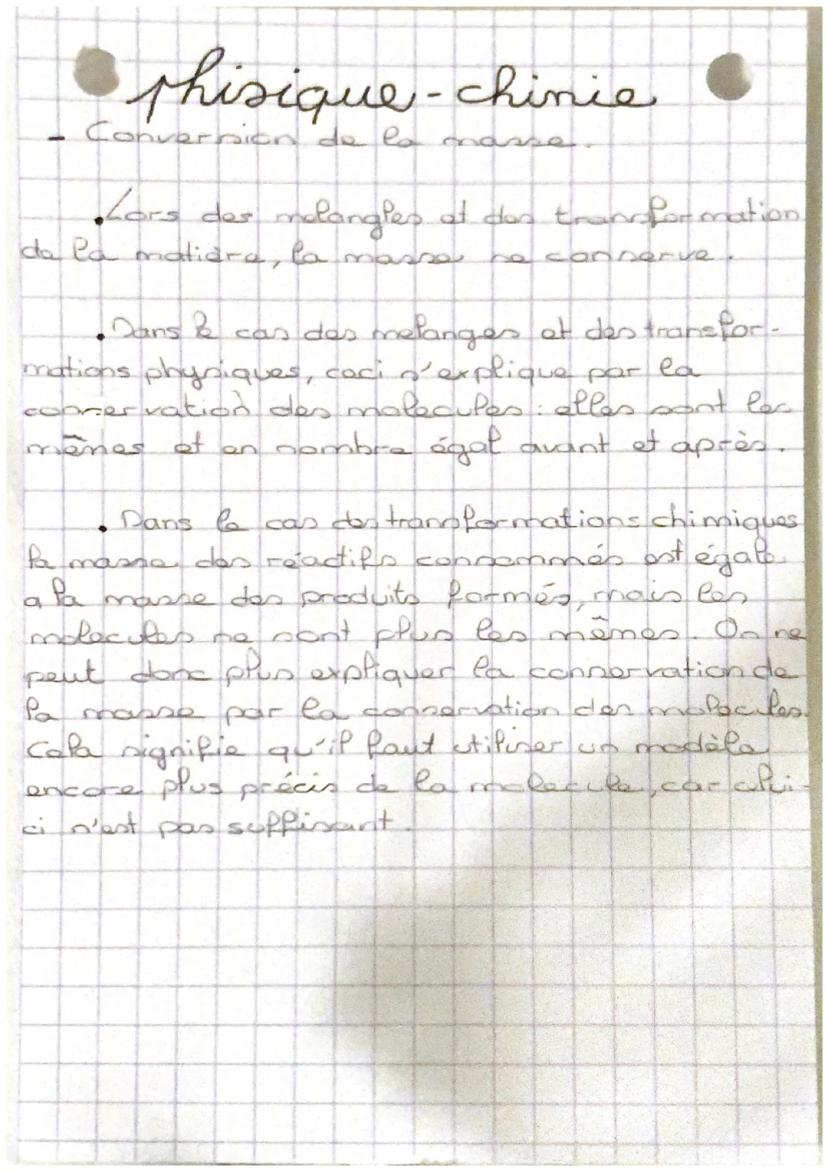 phisique-chimie
- Conversion de la masse.
.Lors des melangles et des transformation
de la matière, la masse se conserve.
.Dans le cas des melanges et des transfor-
mations physiques, ceci s'explique par la
conservation des molecules : elles sont les
mêmes et en nombre égal avant et après.
. Dans le cas des transformations chimiques
la masse des réactifs consommés est égale
a la masse des produits formés, mais les
molecules ne sont plus les mêmes. On ne
peut donc plus expliquer la conservation de
la masse par la conservation des molecules.
Cela signifie qu'il faut utiliser un modèle
encore plus précis de la molecule, car celui-
ci n'est pas suffisant.